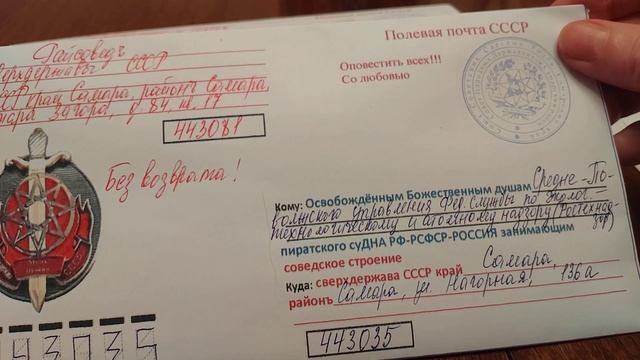 Полевая почта СССР
Оповестить всех!!!
Со любовью
Райсоведъ
СССР
край Самара, районъ Самара,
д 84,
17
443081
Без возврата!
СССР
Кому: Освобождённым Божественным душам Средне-По-
волжского управления Фед. Службы по Эколог-
технологическому и атомному надзору (Ростехнад-
зор)
пиратского суДНА РФ-РСФСР-РОССИЯ занимающим
соведское строение
Куда: сверхдержава СССР край Самара,
районъ Самара, ул. Нагорная, 136а
443035
443035